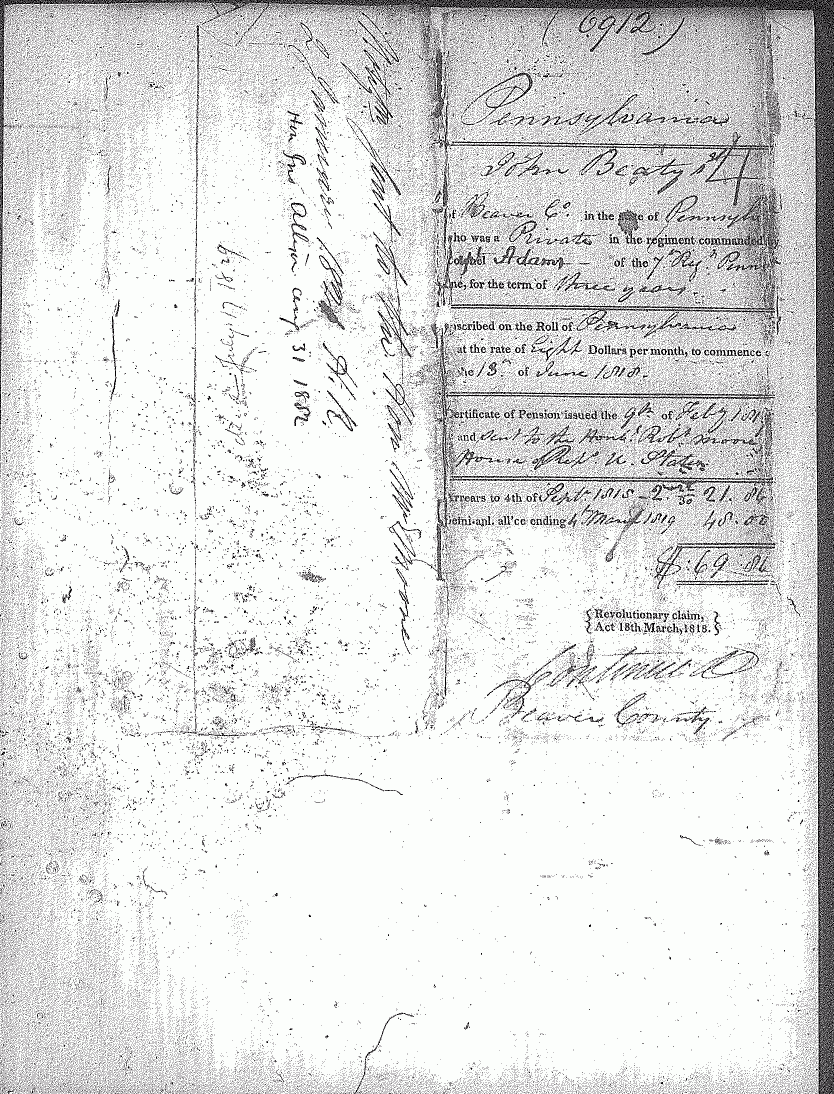 (6912)
Pennsylvania
John Beaty
of Beaver Co. in the state of Pennsylva
who was a Private in the regiment commanded by
Colonel Adams — of the 7th Regt. Penn
ine, for the term of three years.
nscribed on the Roll of Pennsylvania
at the rate of Eight Dollars per month, to commence
the 13th of June 1818.
ertificate of Pension issued the 9th of Feby 181
and sent to the Honbl. Robt. Moore
House of Reps. U. States
rrears to 4th of Sept. 1818 21.86
emi-anl. all'ce ending 4 March 1819 48.00
$:69.86
Revolutionary claim,
Act 18th March, 1818.
Continued
Beaver County.
sent to the Hon. Moore
January H.R.
Hon Jno Allison 31
July 17 1829